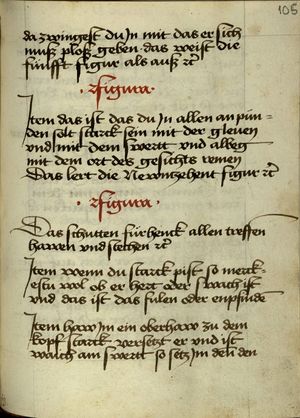 105
da zwingest du In mit das er sich
muß ploß geben das weist die
fünfft figur als auß rc
· figura ·
Item das ist das du In allen anpün=
den solt starck sein mit der gleuen
vnd mit dem swertt vnd albeg
mit dem ort des gesichts remen
Das lert die Newnzehent figur rc
· figura ·
Das schutten für henck allen treffen
hawen vnd stechen rc
Item wenn du starck pist so merck
estu wol ob er hert oder swach ist
vnd das ist das fulen oder enpfinde
Item haw Im ein oberhaw zu dem
kopf starck versetzt er vnd ist
waich am swertt so setz Im den den